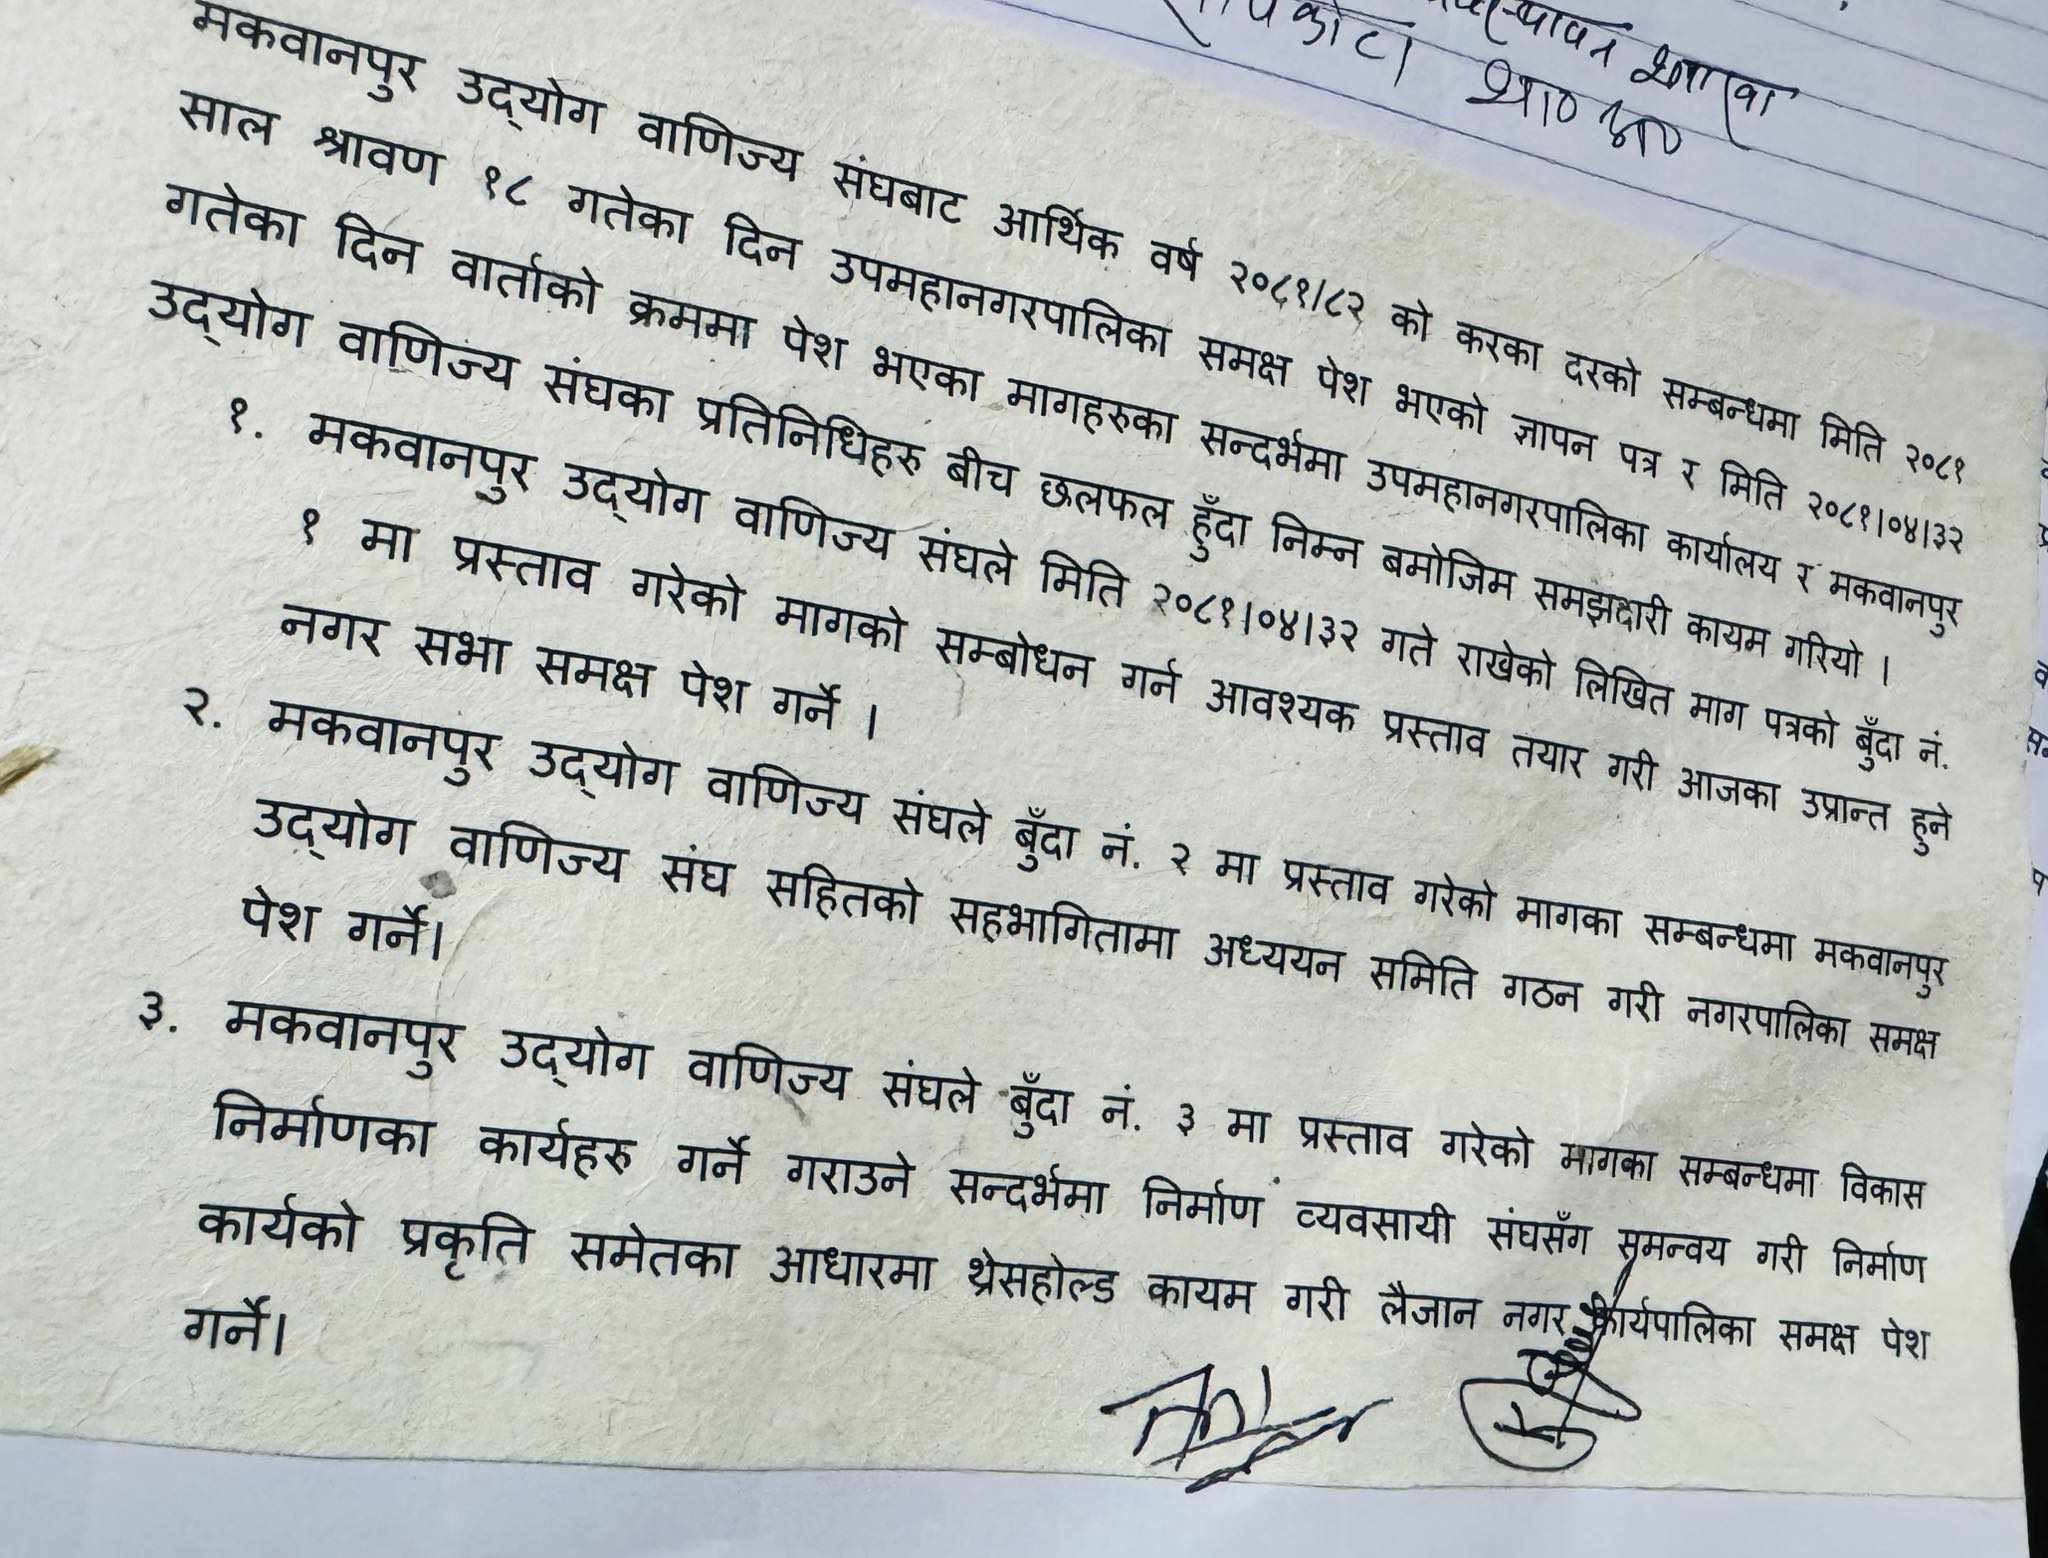 शाखा
मकवानपुर उद्‌योग वाणिज्य संघबाट आर्थिक वर्ष २०८१/८२ को करका दरको सम्बन्धमा मिति २०८१
साल श्रावण १८ गतेका दिन उपमहानगरपालिका समक्ष पेश भएको ज्ञापन पत्र र मिति २०८१।०४।३२
गतेका दिन वार्ताको क्रममा पेश भएका मागहरुका सन्दर्भमा उपमहानगरपालिका कार्यालय र मकवानपुर
उद्‌योग वाणिज्य संघका प्रतिनिधिहरु बीच छलफल हुँदा निम्न बमोजिम समझदारी कायम गरियो ।
१. मकवानपुर उद्‌योग वाणिज्य संघले मिति २०८१।०४।३२ गते राखेको लिखित माग पत्रको बुँदा नं.
१ मा प्रस्ताव गरेको मागको सम्बोधन गर्न आवश्यक प्रस्ताव तयार गरी आजका उप्रान्त हुने
नगर सभा समक्ष पेश गर्ने ।
२. मकवानपुर उद्‌योग वाणिज्य संघले बुँदा नं. २ मा प्रस्ताव गरेको मागका सम्बन्धमा मकवानपुर
उद्‌योग वाणिज्य संघ सहितको सहभागितामा अध्ययन समिति गठन गरी नगरपालिका समक्ष
पेश गर्ने।
३. मकवानपुर उद्‌योग वाणिज्य संघले बुँदा नं. ३ मा प्रस्ताव गरेको मागका सम्बन्धमा विकास
निर्माणका कार्यहरु गर्ने गराउने सन्दर्भमा निर्माण व्यवसायी संघसँग समन्वय गरी निर्माण
कार्यको प्रकृति समेतका आधारमा थ्रेसहोल्ड कायम गरी लैजान नगर कार्यपालिका समक्ष पेश
गर्ने।